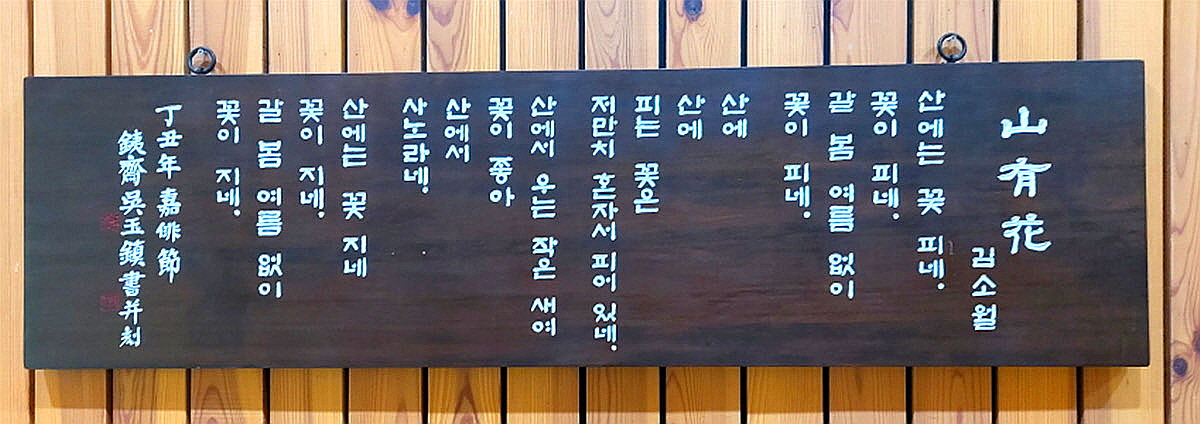 山有花
김소월
산에는 꽃 피네.
꽃이 피네.
갈 봄 여름 없이
꽃이 피네.
산에
산에
피는 꽃은
저만치 혼자서 피어 있네.
산에서 우는 작은 새여
꽃이 좋아
산에서
사노라네.
산에는 꽃 지네
꽃이 지네.
갈 봄 여름 없이
꽃이 지네.
丁丑年 嘉俳節
銕齋吳玉鎭書并刻